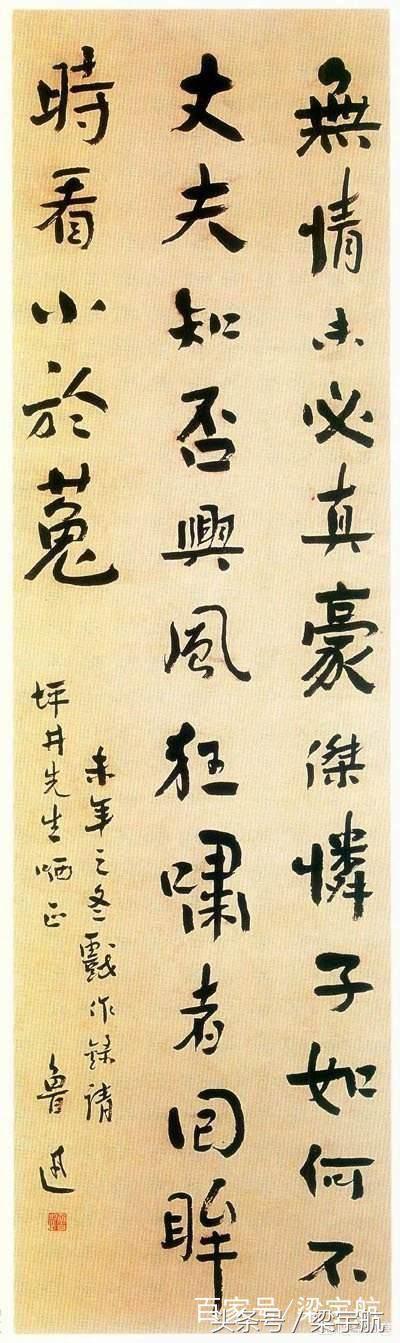 無情未必真豪傑憐子如何不
丈夫知否興風狂嘯者回眸
時看小於菟
未年之冬戲作錄請
坪井先生哂正
魯迅
百家号/梁宇航
头条号/梁宇航